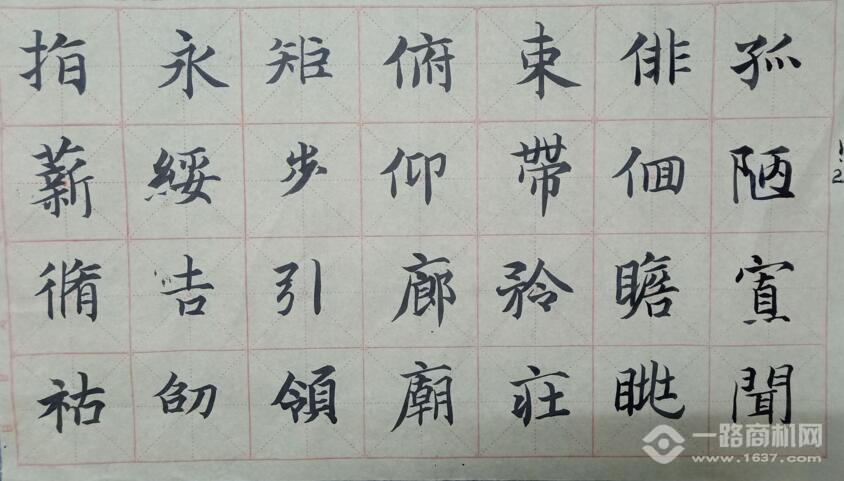 指薪脩祜
永綏吉劭
矩步引領
俯仰廊廟
束帶矜莊
俳佪瞻眺
孤陋寡聞
一路商机网
www.1637.com